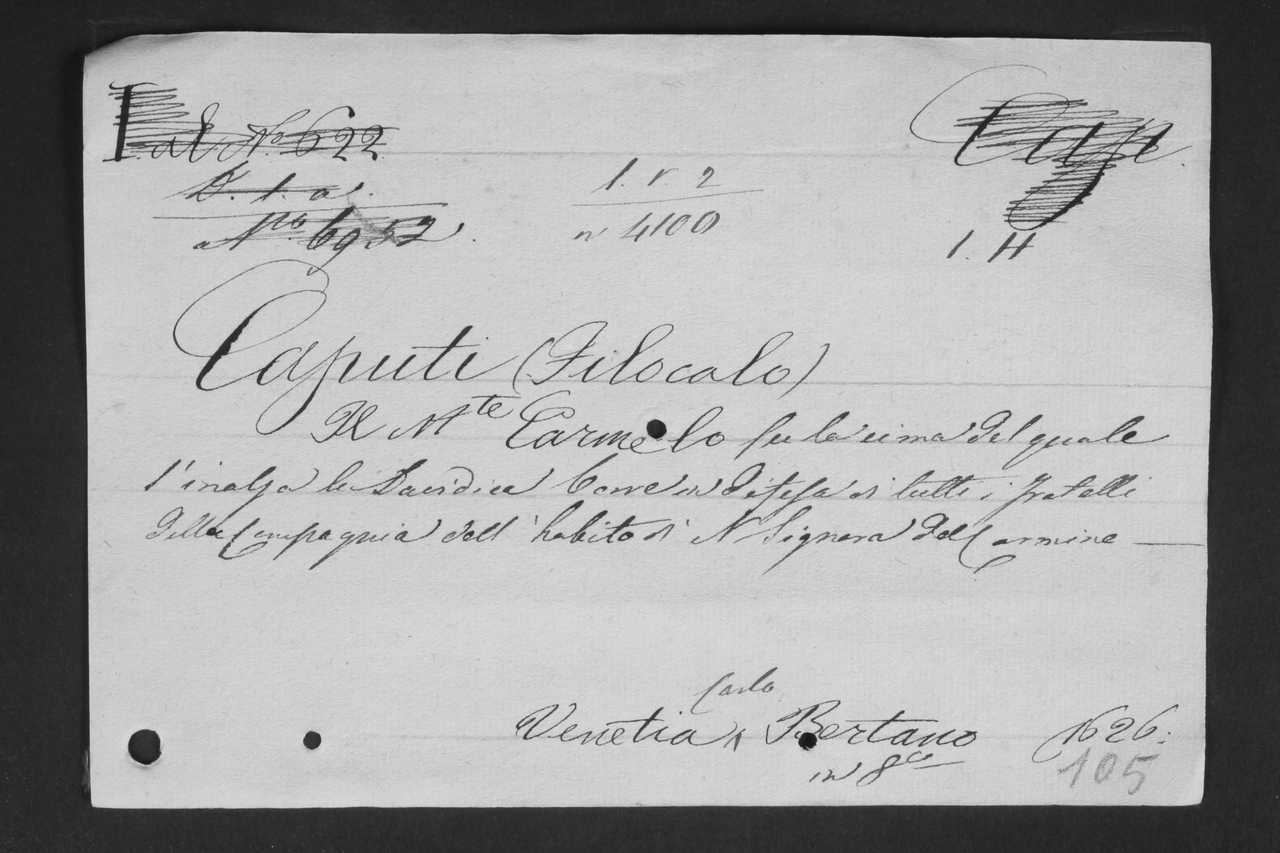 al No. 622
D. 1. a.
a No. 6952
1. r. 2
n 4100
Cap
1. H
Caputi (Filocalo)
Il Mte Carmelo su la cima del quale
s'inalza la Davidica torre in difesa di tutti i fratelli
della Compagnia dell'habito di N Signora del Carmine
Carlo
Venetia ʌ Bertano 1626.
in 8vo
105